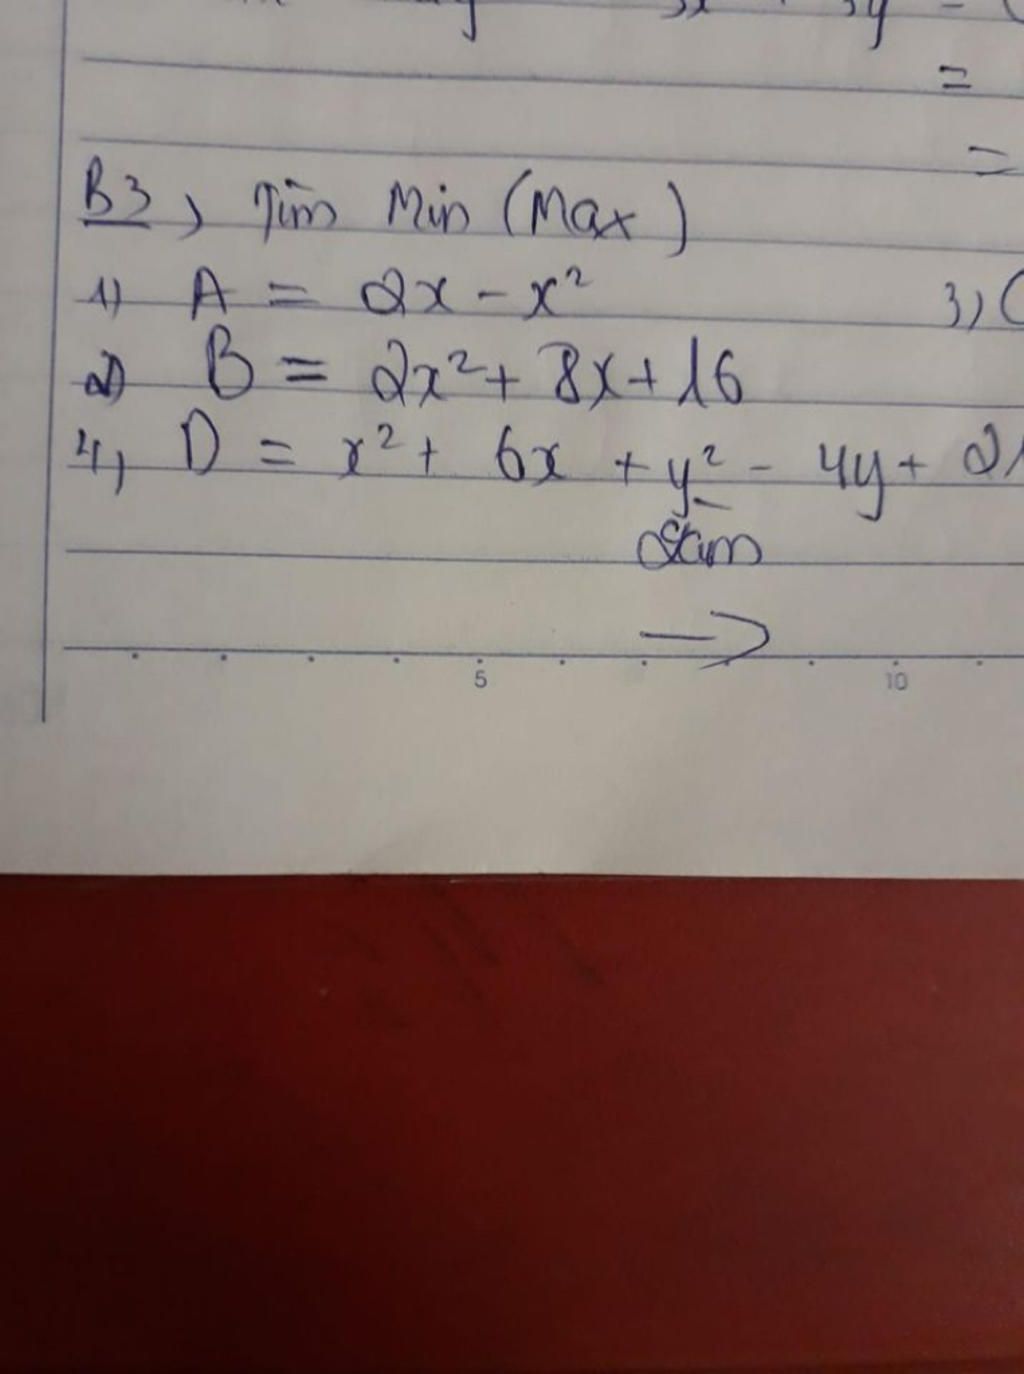 =
=
B3, Tìm Min (Max)
1) A = 2x - x² 3, (
2) B = 2x² + 8x + 16
4, D = x² + 6x + y² - 4y + 2
→
5 10